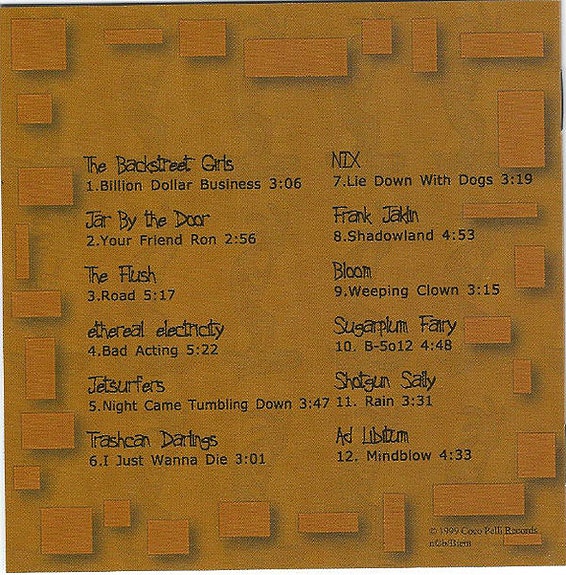 The Backstreet Girls
1.Billion Dollar Business 3:06
Jar By the Door
2.Your Friend Ron 2:56
The Flush
3.Road 5:17
ethereal electricity
4.Bad Acting 5:22
Jetsurfers
5.Night Came Tumbling Down 3:47
Trashcan Darlings
6.I Just Wanna Die 3:01
NIX
7.Lie Down With Dogs 3:19
Frank Jaklin
8.Shadowland 4:53
Bloom
9.Weeping Clown 3:15
Sugarplum Fairy
10. B-5o12 4:48
Shotgun Sally
11. Rain 3:31
Ad Libitum
12. Mindblow 4:33
© 1999 Coco Pelli Records